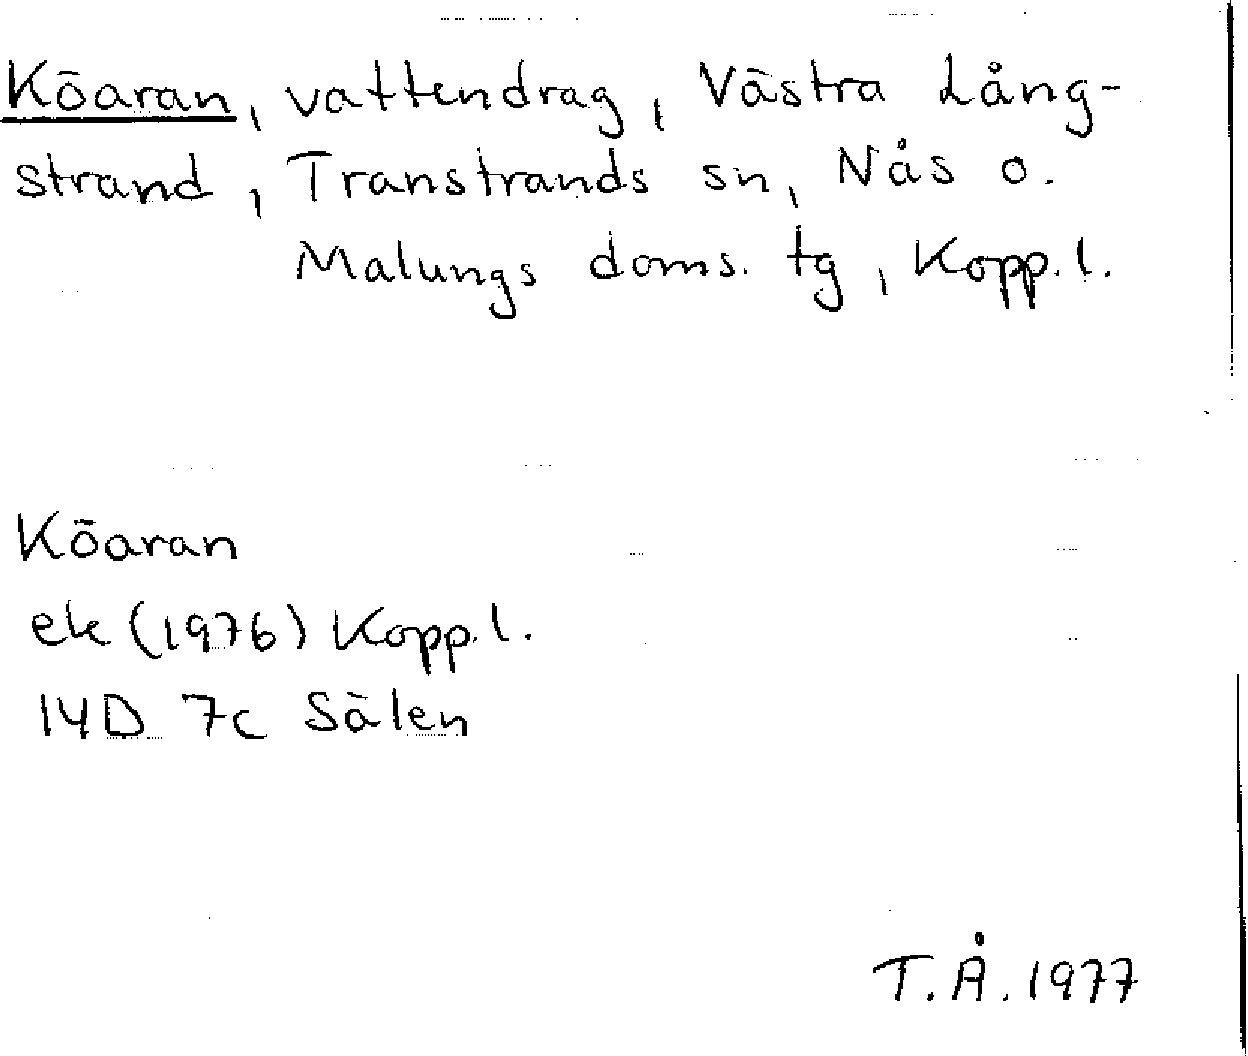 Köaran, vattendrag, Västra Lång-
strand, Transtrands sn, Nås o.
Malungs doms. tg, Kopp. l.
Köaran
ek (1976) Kopp. l.
14D 7c Sälen
T.Å. 1977